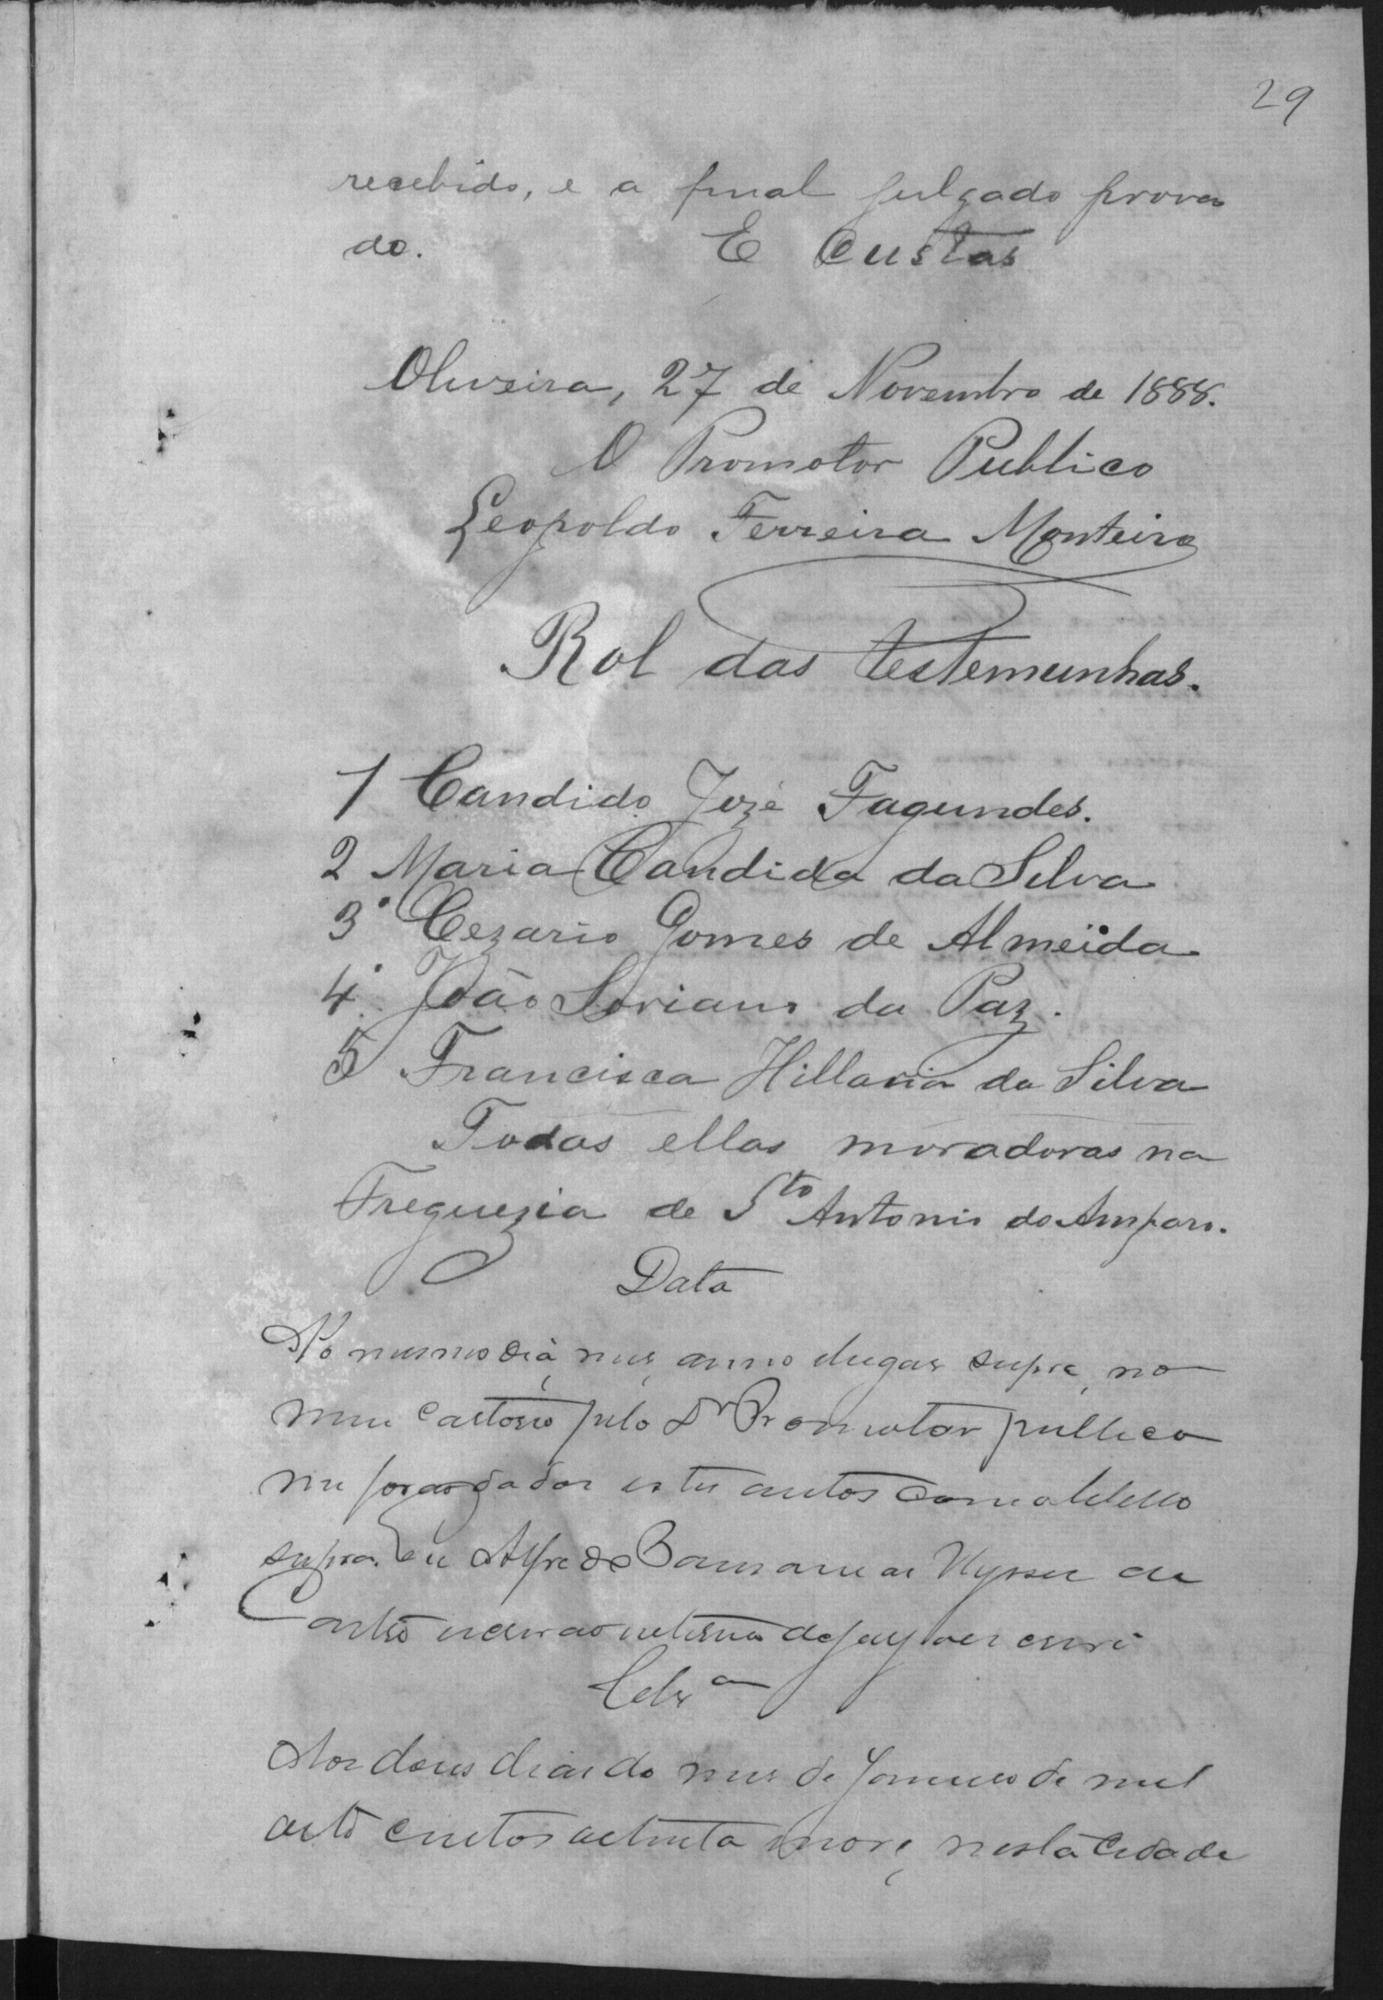 29
recebido, e a final julgado prova
do. E Custas
Oliveira, 27 de Novembro de 1888.
O Promotor Publico
Leopoldo Ferreira Monteiro
Rol das testemunhas.
1 Candido Jozé Fagundes.
2 Maria Candida da Silva
3º Cezario Gomes de Almeida
4º João Soriano da Paz.
5 Francisca Hillaria da Silva
Todas ellas moradoras na
Freguezia de Sto Antonio do Amparo.
Data
No mesmo dia, mes, anno e lugar supra, no
meu Cartorio pelo Dr Promotor publico
me forão dados estes autos com o libello
supra. Eu Alfredo de Ulysses de
Castro escrivão interino do jury o escrevi
Aos dous dias do mes de Janeiro de mil
oito centos oitenta e nove, nesta Cidade